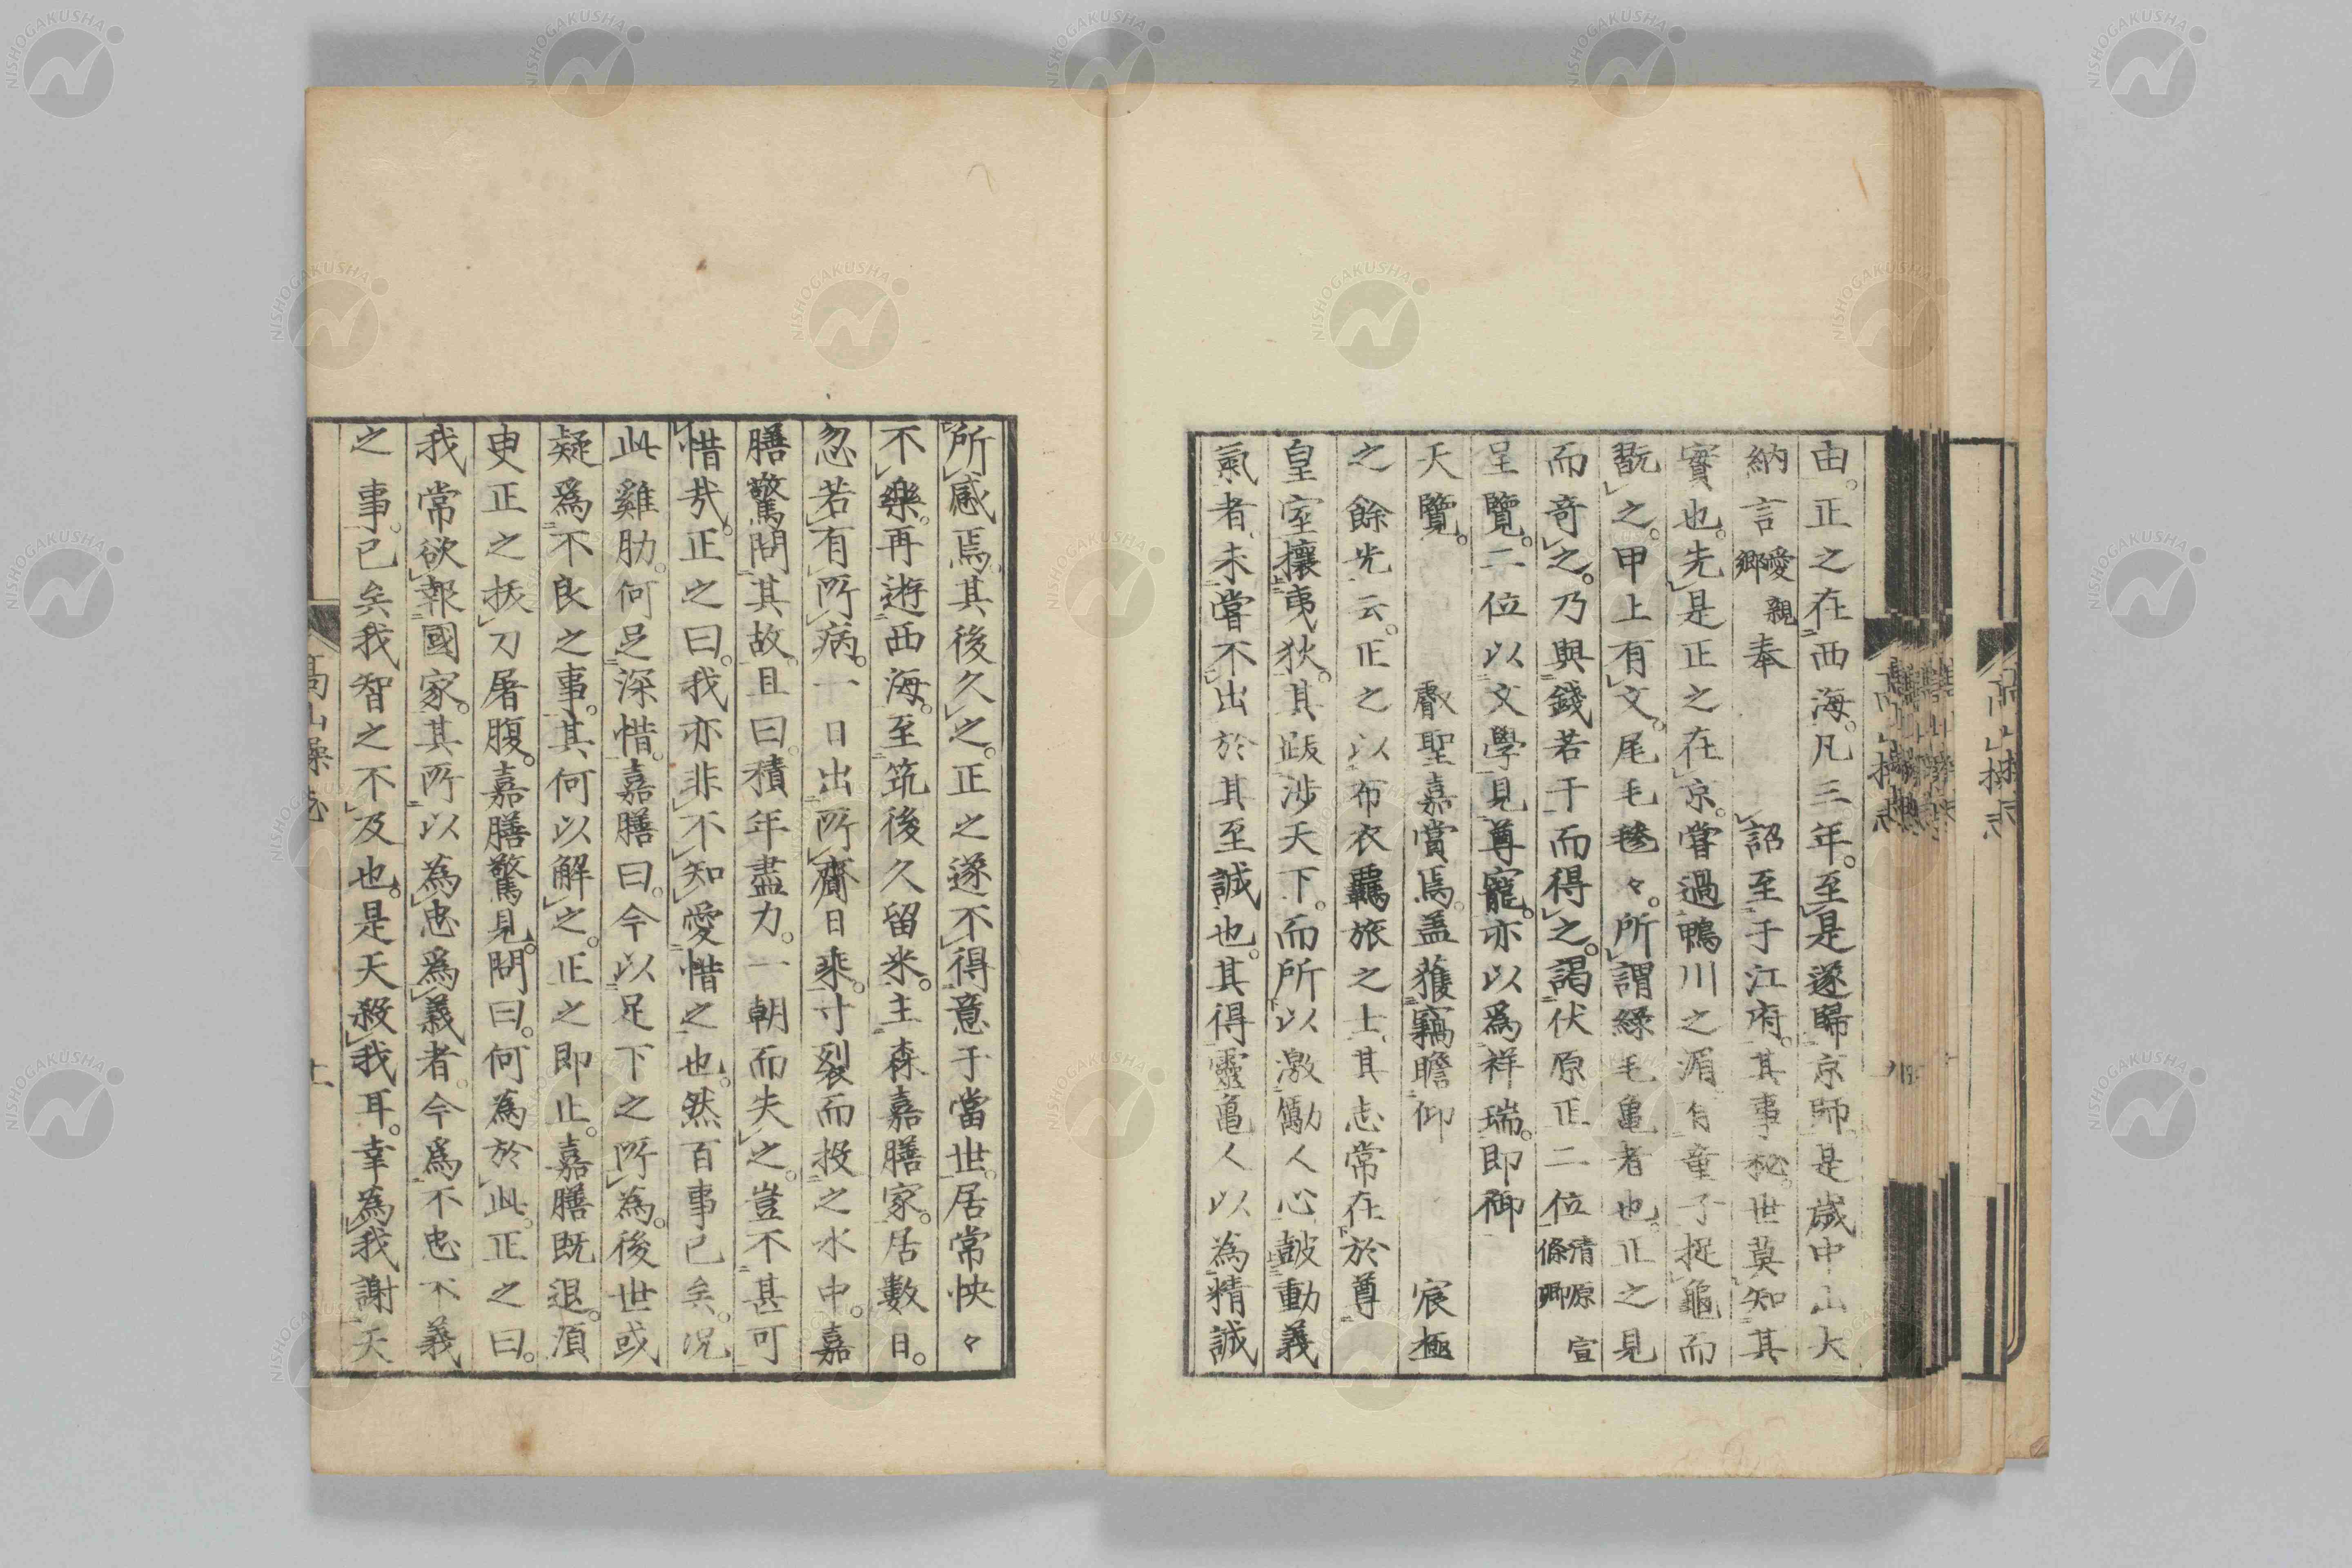 由。正之在西海。凡三年。至是遂歸京師。是歲中山大
納言愛親卿奉　　詔至于江府。其事秘。世莫知其
實也。先是正之在京。嘗過鴨川之湄。有童子捉龜而
翫之。甲上有文。尾毛毿々。所謂綠毛龜者也。正之見
而奇之。乃與錢若干而得之。謁伏原正二位清原宣條卿
呈覽。二位以文學見尊寵。亦以爲祥瑞。即御
天覽。　　叡聖嘉賞焉。盖獲竊瞻仰　　宸極
之餘光云。正之以布衣羈旅之士。其志常在於尊
皇室攘夷狄。其跋涉天下。而所以激勵人心皷動義
氣者。未嘗不出於其至誠也。其得靈龜人以為精誠
所感焉。其後久之。正之遂不得意于當世。居常怏々
不樂。再遊西海。至筑後久留米。主森嘉膳家。居數日。
忽若有所病。一日出所齎日乘。寸裂而投之水中。嘉
膳驚問其故。且曰。積年盡力。一朝而失之。豈不甚可
惜哉。正之曰。我亦非不知愛惜之也。然百事已矣。况
此雞肋。何足深惜。嘉膳曰。今以足下之所為。後世或
疑爲不良之事。其何以解之。正之即止。嘉膳既退。須
臾正之拔刀屠腹。嘉膳驚見。問曰。何為於此。正之曰。
我常欲報國家。其所以為忠爲義者。今爲不忠不義
之事。已矣我智之不及也。是天殺我耳。幸為我謝天
高山操志
NISHOGAKUSHA